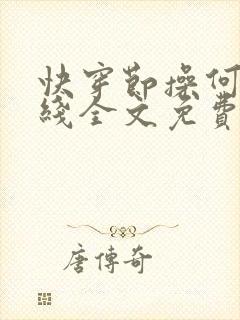 快穿節操何
綫全文免費
唐傳奇